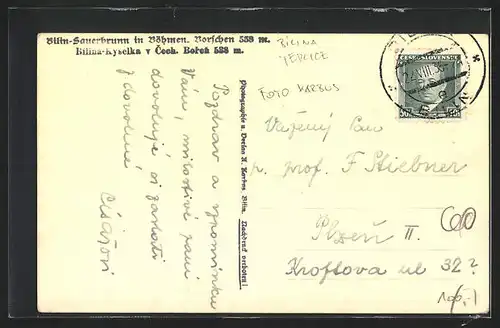 Bilin-Sauerbrunn in Böhmen. Borschen 538 m.
Bilina-Kyselka v Čech. Bořeň 538 m.
BÍLINA
TEPLICE
FOTO KARBUS
ČESKOSLOVENSKO
50
Photographie u. Verlag Bilin. Nachdruck verboten!
Pozdrav a vzpomínku
Vám, milostivé paní
dovoluje si zaslati
z dovolené
Vážený pan
p. prof. F Stiebner
Plzeň II.
Kroftova ul 32?
60
100,-